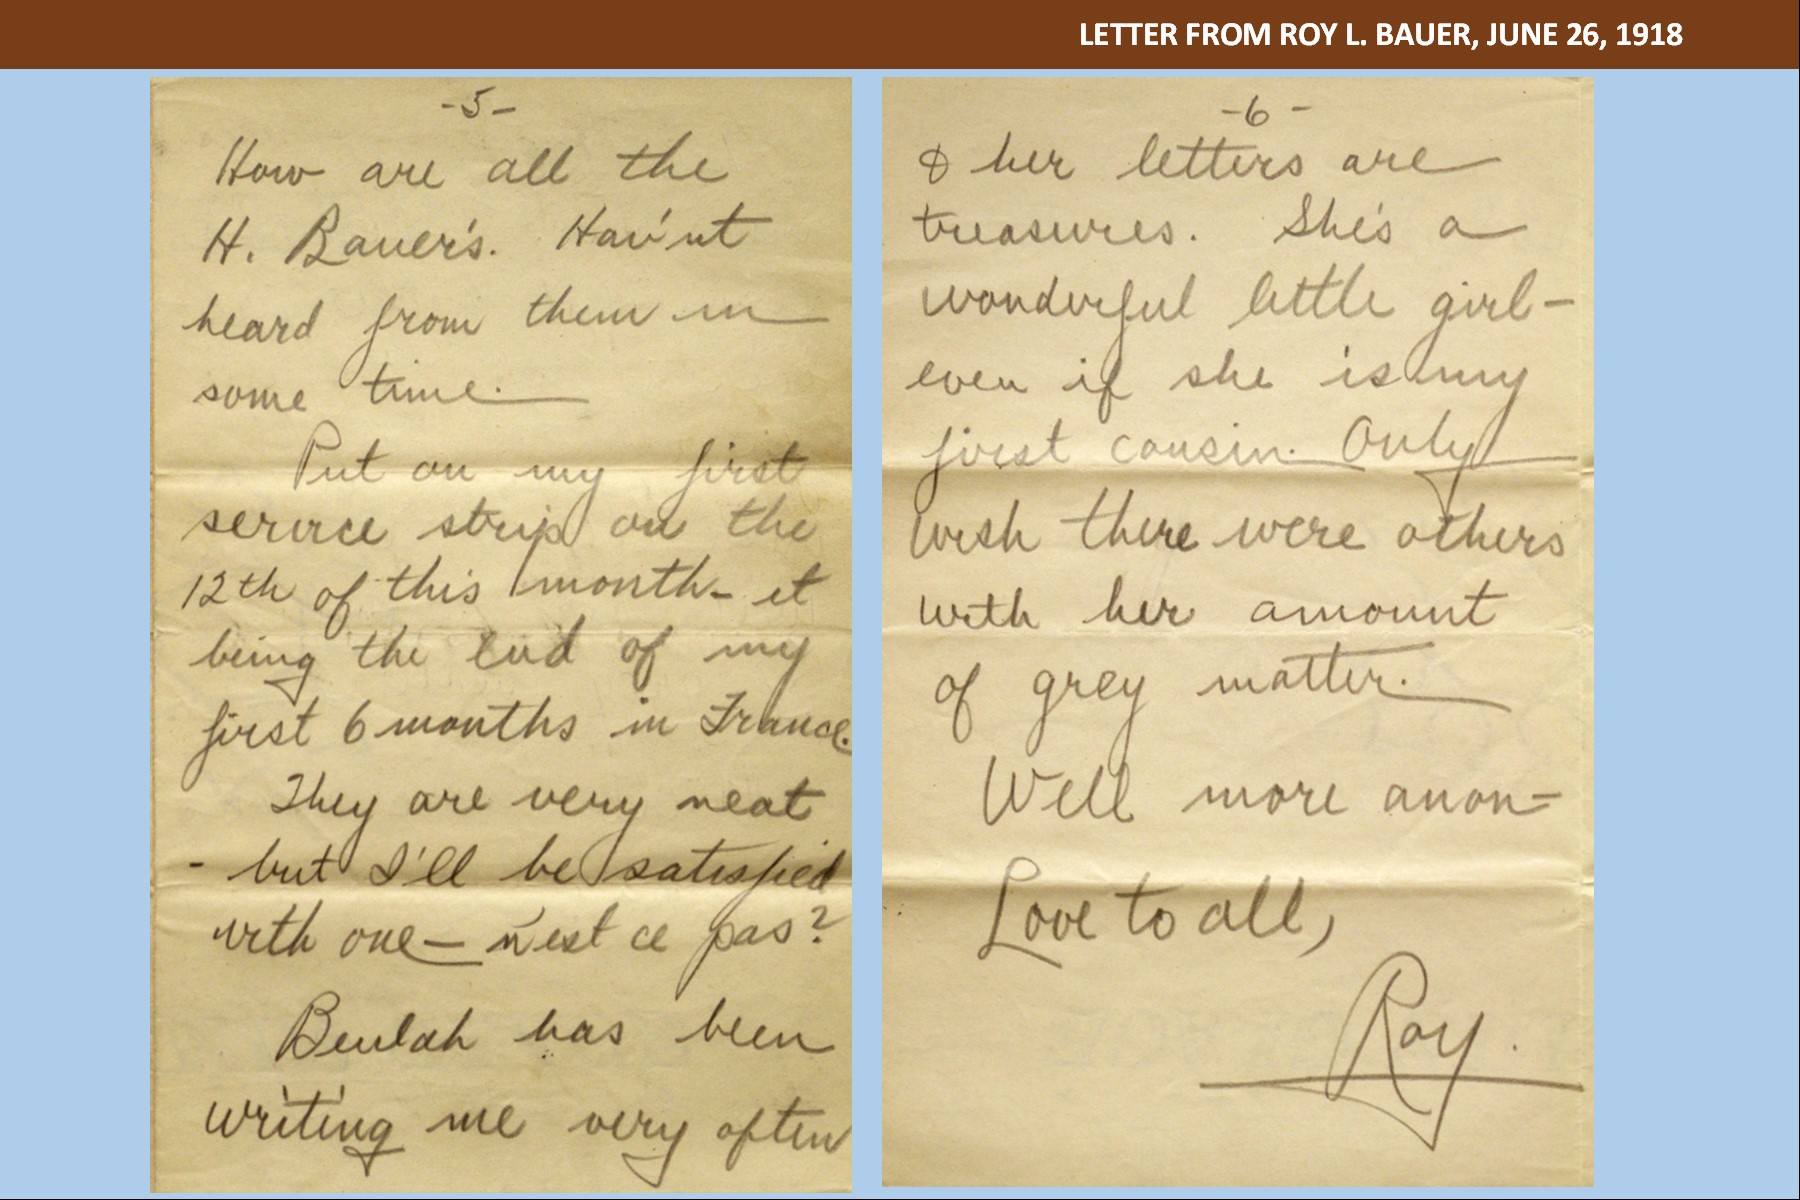 LETTER FROM ROY L. BAUER, JUNE 26, 1918
-5-
How are all the
H. Bauer's. Hav'nt
heard from them in
some time.
Put on my first
service strip on the
12th of this month - it
being the end of my
first 6 months in France.
They are very neat
- but I'll be satisfied
with one - n'est ce pas?
Beulah has been
writing me very often
-6-
& her letters are
treasures. She's a
wonderful little girl -
even if she is my
first cousin. Only
wish there were others
with her amount
of grey matter.
Well more anon -
Love to all,
Roy.